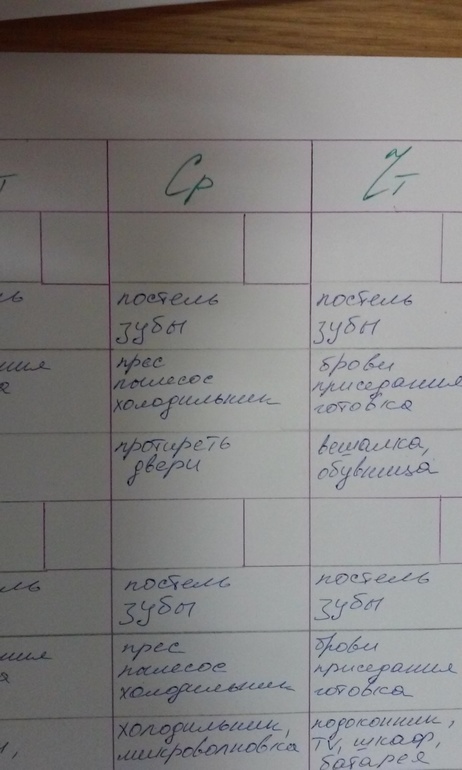 Ср Чт
постель постель
зубы зубы
прес брови
пылесос приседания
холодильник готовка
протиреть вешалка,
двери обувница
постель постель
зубы зубы
прес брови
пылесос приседания
холодильник готовка
холодильник, подоконник,
микроволновка TV, шкаф,
батарея